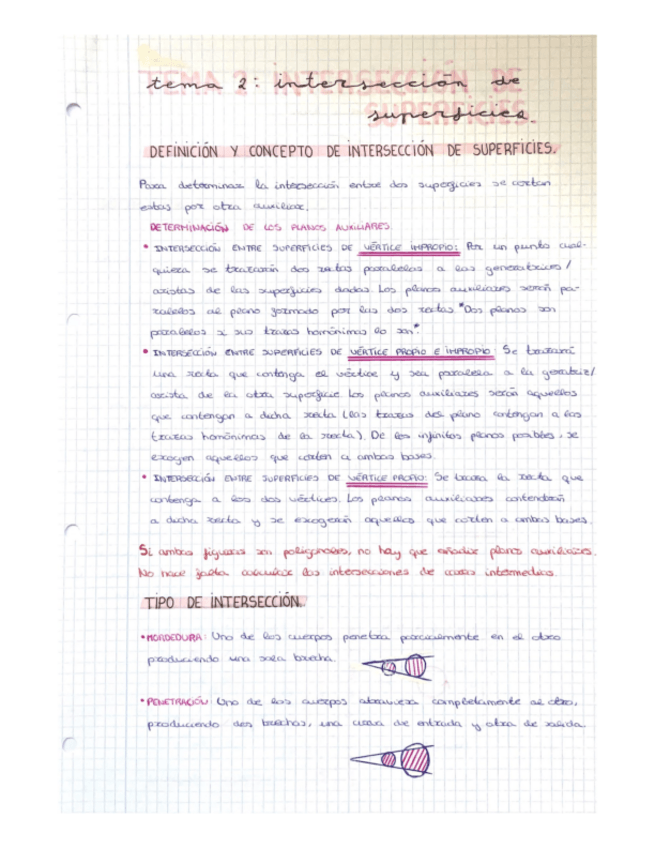 TEMA 2: INTERSECCIÓN DE SUPERFICIES.
tema 2: intersección de
superficies.
DEFINICIÓN Y CONCEPTO DE INTERSECCIÓN DE SUPERFICIES.
Para determinar la intersección entre dos superficies se cortan
estas por otra auxiliar.
DETERMINACIÓN DE LOS PLANOS AUXILIARES
• INTERSECCIÓN ENTRE SUPERFICIES DE VÉRTICE IMPROPIO: Por un punto cual-
quiera se trazarán dos rectas paralelas a las generatrices/
aristas de las superficies dadas. Los planos auxiliares serán pa-
ralelos al plano formado por las dos rectas. "Dos planos son
paralelos si sus trazas homónimas lo son".
• INTERSECCIÓN ENTRE SUPERFICIES DE VÉRTICE PROPIO E IMPROPIO: Se trazará
una recta que contenga el vértice y sea paralela a la generatriz/
arista de la otra superficie. Los planos auxiliares serán aquellos
que contengan a dicha recta (las trazas del plano contengan a las
trazas homónimas de la recta). De los infinitos planos posibles, se
escogen aquellos que corten a ambas bases.
• INTERSECCIÓN ENTRE SUPERFICIES DE VÉRTICE PROPIO: Se traza la recta que
contenga a los dos vértices. Los planos auxiliares contendrán
a dicha recta y se escogerán aquellos que corten a ambas bases.
Si ambas figuras son poligonales, no hay que añadir planos auxiliares.
No hace falta calcular las intersecciones de caras intermedias.
TIPO DE INTERSECCIÓN.
• MORDEDURA: Uno de los cuerpos penetra parcialmente en el otro
produciendo una sola brecha.
• PENETRACIÓN: Uno de los cuerpos atraviesa completamente al otro,
produciendo dos brechas, una curva de entrada y otra de salida.